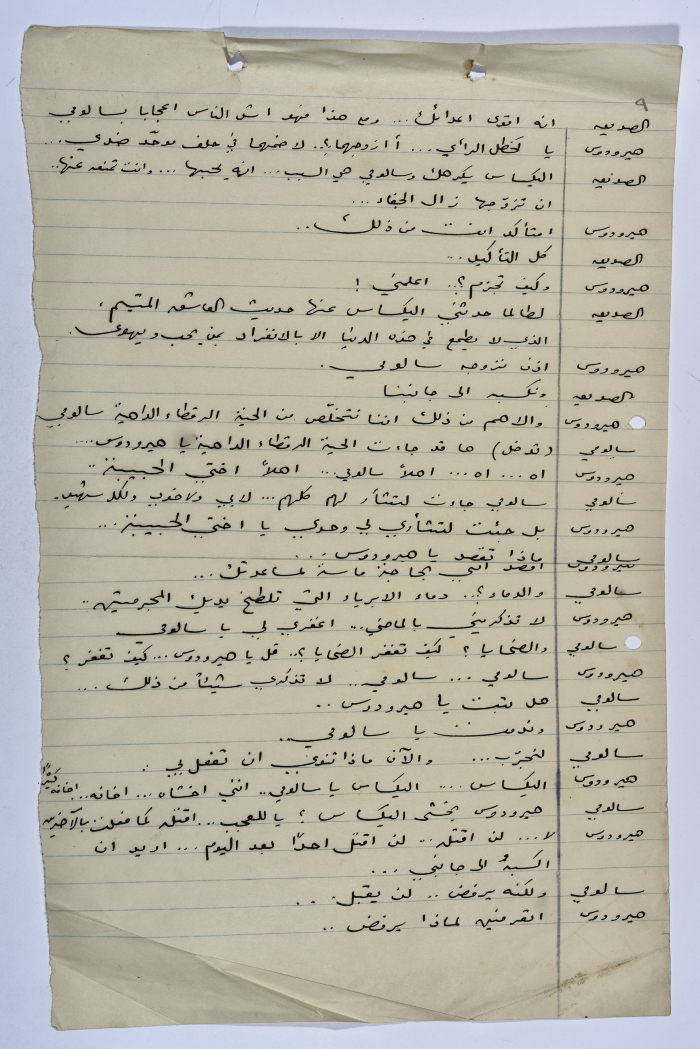 ٩
الصديقه انه اقوى اعدائك ... ومع هذا فهو اشد الناس اعجابا بسالومي
هيرودوس يا لخطل الرأي ... أ أزوجهما؟.. لاضمهما في حلف موحّد ضدي ...
الصديقه اليكساس يكرهك وسالومي هي السبب ... انه يحبها ... وانت تمنعه عنها..
ان تزوّجها زال الجفاء ...
هيرودوس امتأكد انت من ذلك ..
الصديقه كل التأكيد ...
هيرودوس وكيف تجزم؟.. اعلمني !
الصديقه لطالما حدثني اليكساس عنها حديث العاشق المتيم ،
الذي لا يطمع في هذه الدنيا الا بالانفراد بمن يحب ويهوى .
هيرودوس اذن نزوجه سالومي .
الصديقه ونكسبه الى جانبنا
هيرودوس والاهم من ذلك اننا نتخلّص من الحية الرقطاء الداهية سالومي
سالومي (تدخل) ها قد جاءت الحية الرقطاء الداهية يا هيرودوس ....
هيرودوس اه ... اه ... اهلاً سالومي ... اهلاً اختي الحبيبة ..
سالومي سالومي جاءت لتتثأر لهم كلهم ... لابي ولاخوي ولكل شهيد.
هيرودوس بل جئت لتتثأري لي وحدي يا اختي الحبيبة ...
سالومي ماذا تقصد يا هيرودوس ...
هيرودوس اقصد انني بحاجة ماسة لمساعدتك ...
سالومي والدماء ؟.. دماء الابرياء التي تلطخ يديك المجرمتين ..
هيرودوس لا تذكريني بالماضي ... اغفري لي يا سالومي
سالومي والضحايا ؟ كيف تغفر الضحايا ؟.. قل يا هيرودوس ... كيف تغفر ؟
هيرودوس سالومي ... سالومي .. لا تذكري شيئاً من ذلك ....
سالومي هل تبت يا هيرودوس ..
هيرودوس وندمت يا سالومي ..
سالومي لنجرّب ... والآن ماذا تنوي ان تفعل بي .
هيرودوس اليكساس ... اليكساس يا سالومي .. انني اخشاه ... اخافه .. اخافه كثيرًا
سالومي هيرودوس يخشى اليكساس ؟ يا للعجب ... اقتله كما فعلت بالآخرين
هيرودوس لا ... لن اقتله ... لن اقتل احدًا بعد اليوم ... اريد ان
اكسبهُ الى جانبي ...
سالومي ولكنه يرفض .. لن يقبل ...
هيرودوس اتعرفين لماذا يرفض ..